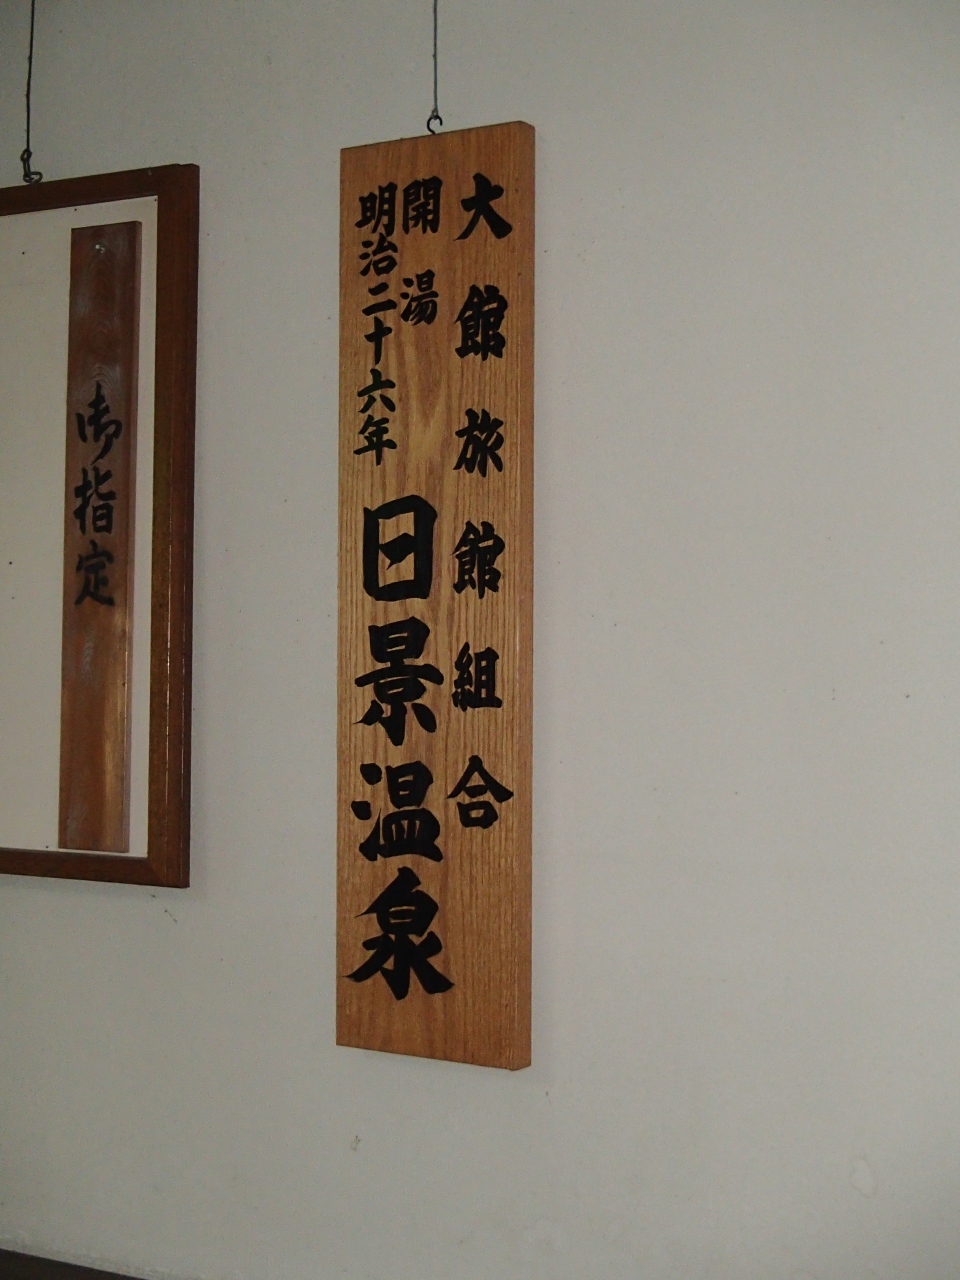 大館旅館組合
開湯
明治二十六年
日景温泉
御指定